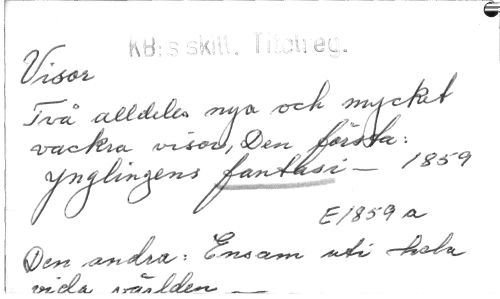 KB:s skill. Titelreg.
Visor
Två alldeles nya och mycket
vackra visor, Den första:
Ynglingens fantasi — 1859
E1859 a
Den andra: Ensam uti hela
vida världen —